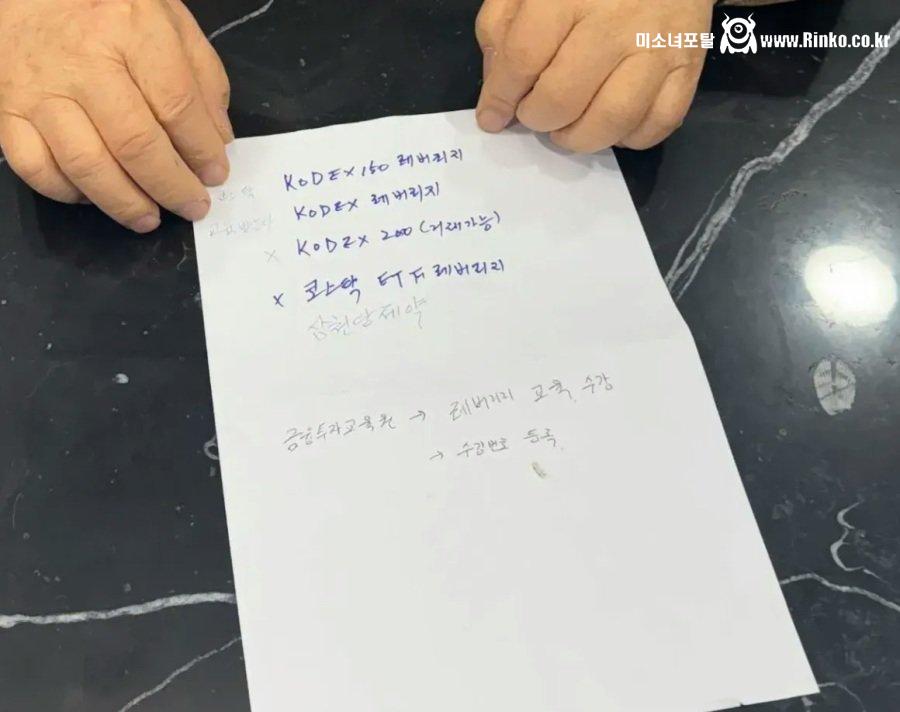 미소녀포탈 www.Rinko.co.kr
코스닥 KODEX 150 레버리지
KODEX 레버리지
x KODEX 200 (거래가능)
x 코스닥 ETF 레버리지
삼천당제약
금융투자교육원 → 레버리지 교육, 수강
→ 수강번호 등록.